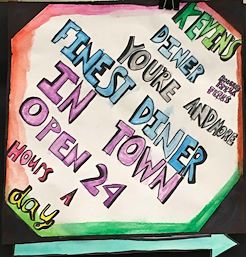 KEVINS
DINER
YOU'RE
AND MORE
FINEST DINER
IN TOWN
OPEN 24
HOURS A
day